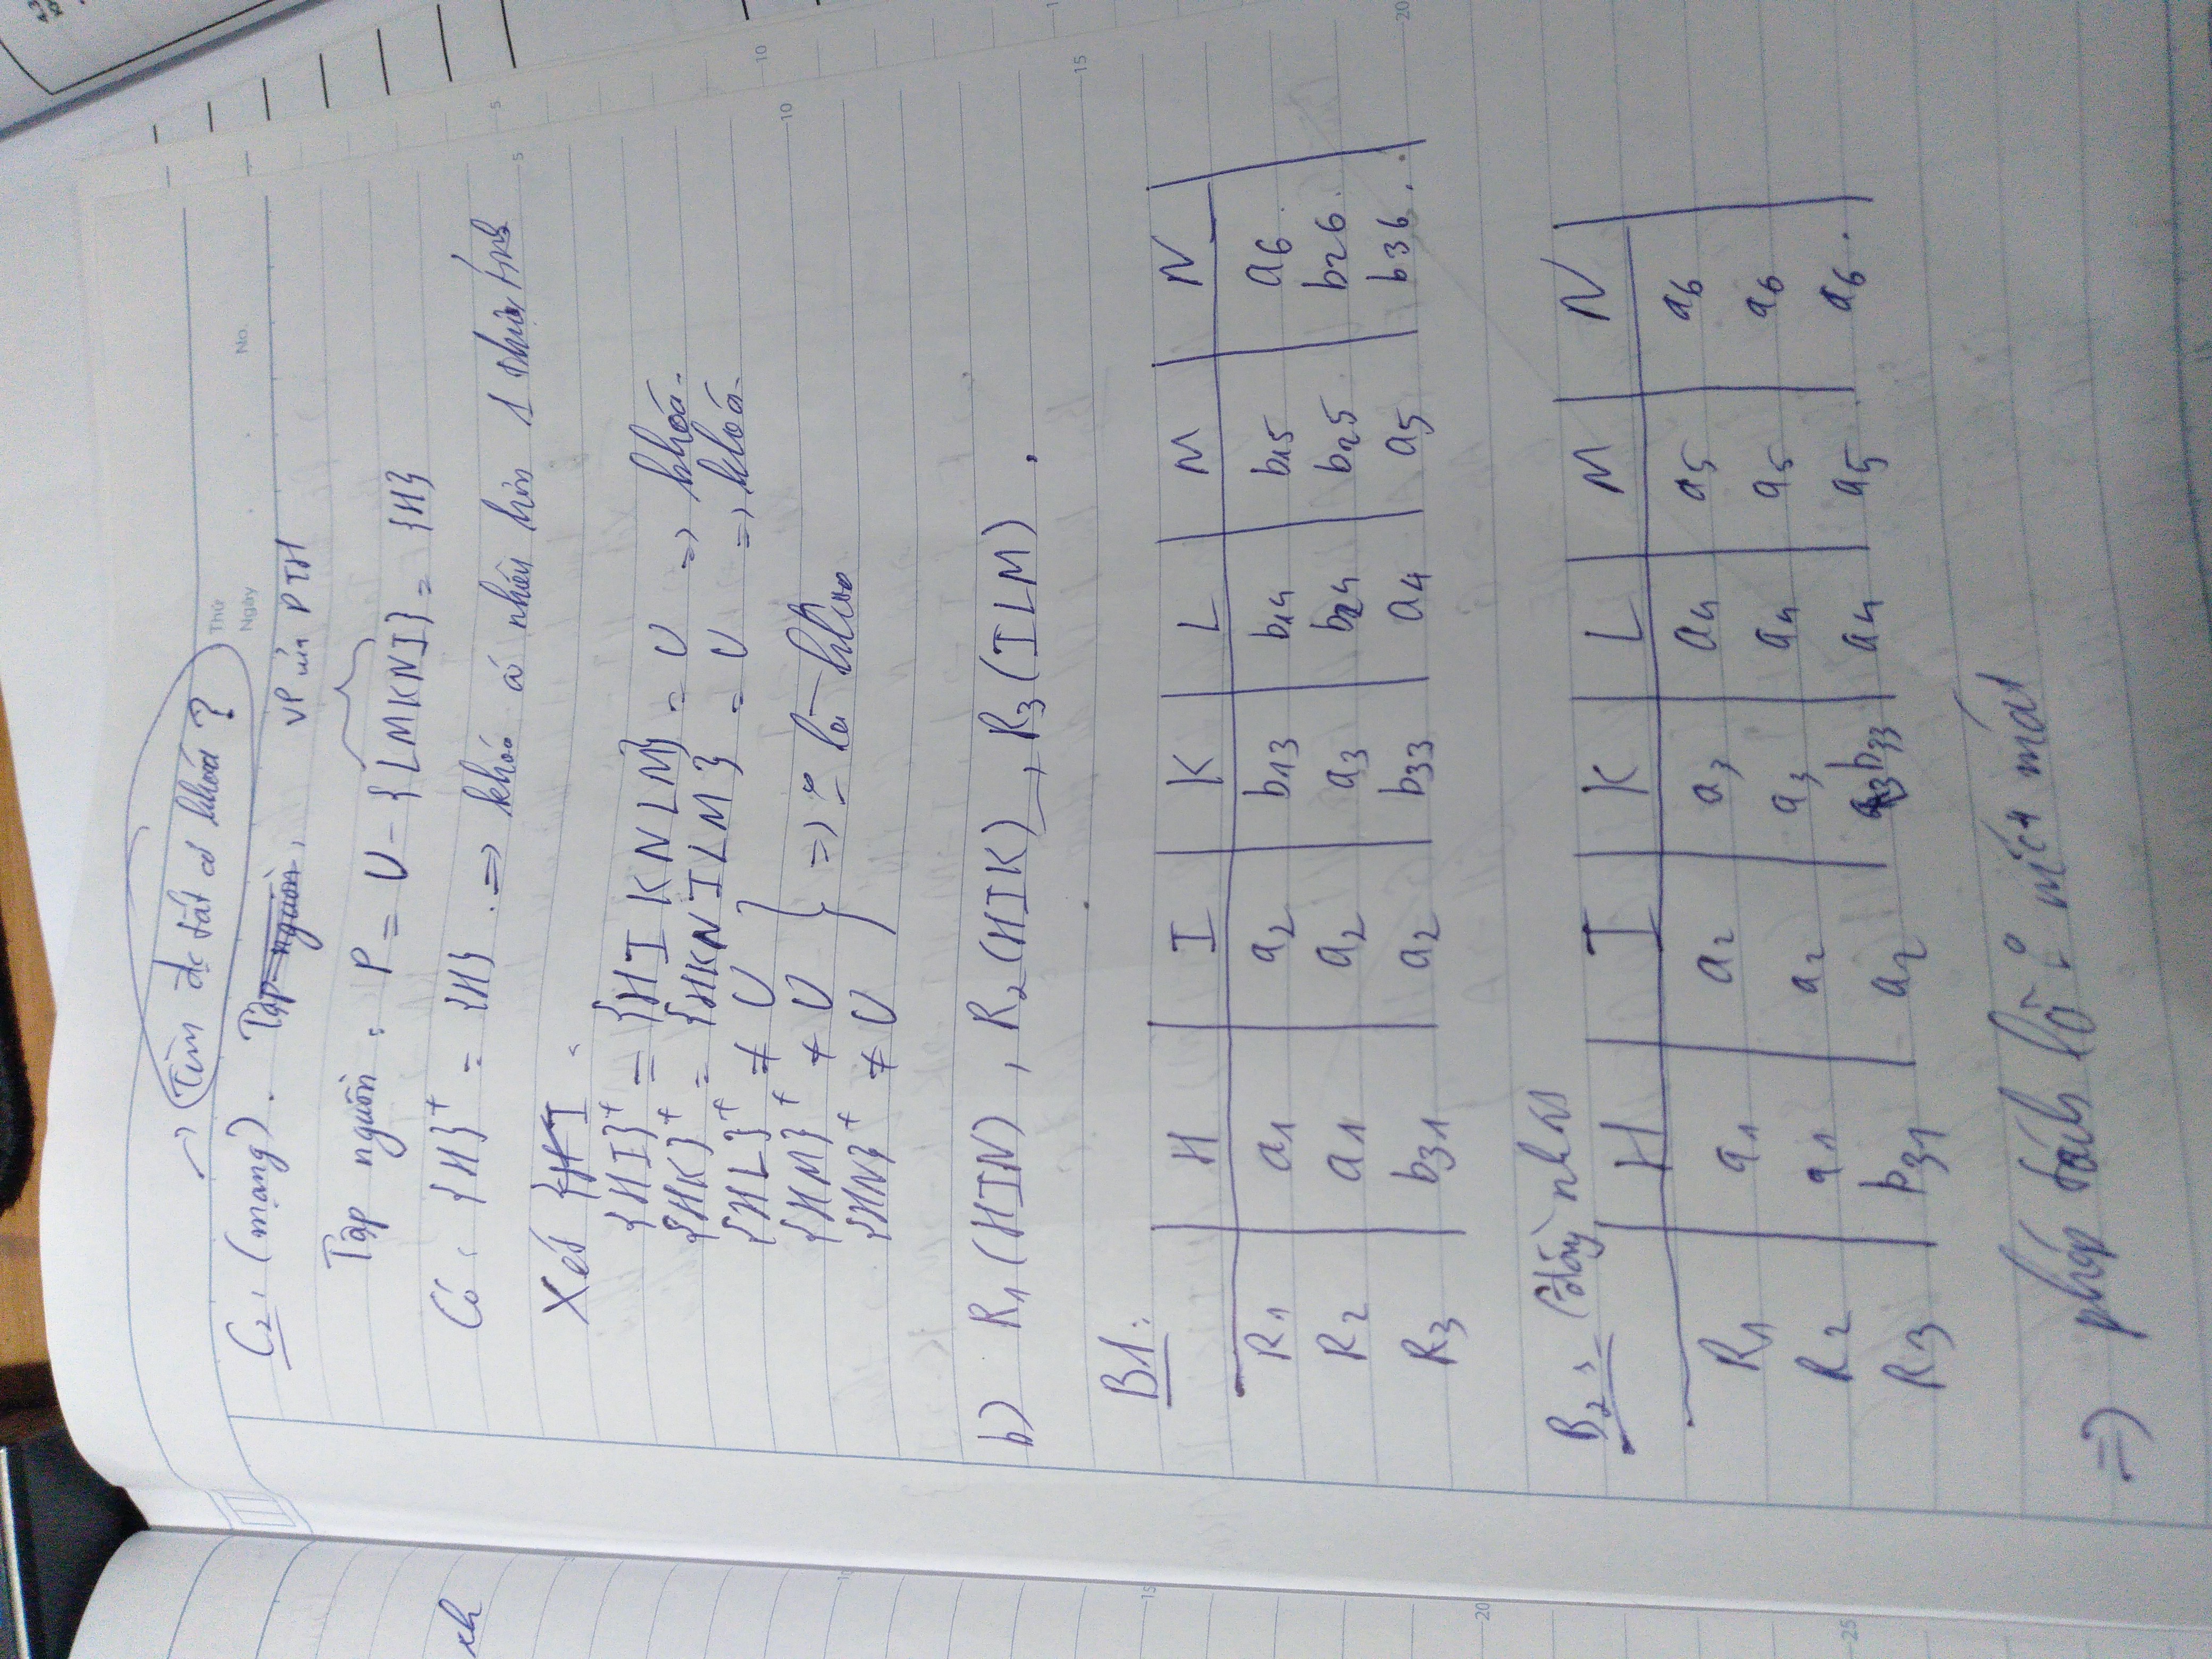 → Tìm đc tất cả khoá ?
Thứ
Ngày . . No.
C2: (mạng). Tập nguồn,
VP của PTH
Tập nguồn : P = U - {LMKNI} = {H}
Có : {H}+ = {H} . => khoá có nhiều hơn 1 thuộc tính
xh
Xét {HI
{HI}+ = {HIKNLM} = U => khoá.
{HK}+ = {HKNILM} = U => khoá.
{HL}+ ≠ U
{HM}+ ≠ U => là khoá
{HN}+ ≠ U
b) R1(HIN) , R2(HIK) , R3(ILM) .
B1:
H I K L M N
R1 a1 a2 b13 b14 b15 a6
R2 a1 a2 a3 b24 b25 b26
R3 b31 a2 b33 a4 a5 b36
B2: (đồng nhất
H I K L M N
R1 a1 a2 a3 a4 a5 a6
R2 a1 a2 a3 a4 a5 a6
R3 b31 a2 a3 b33 a4 a5 a6
=> phép tách là mất mát